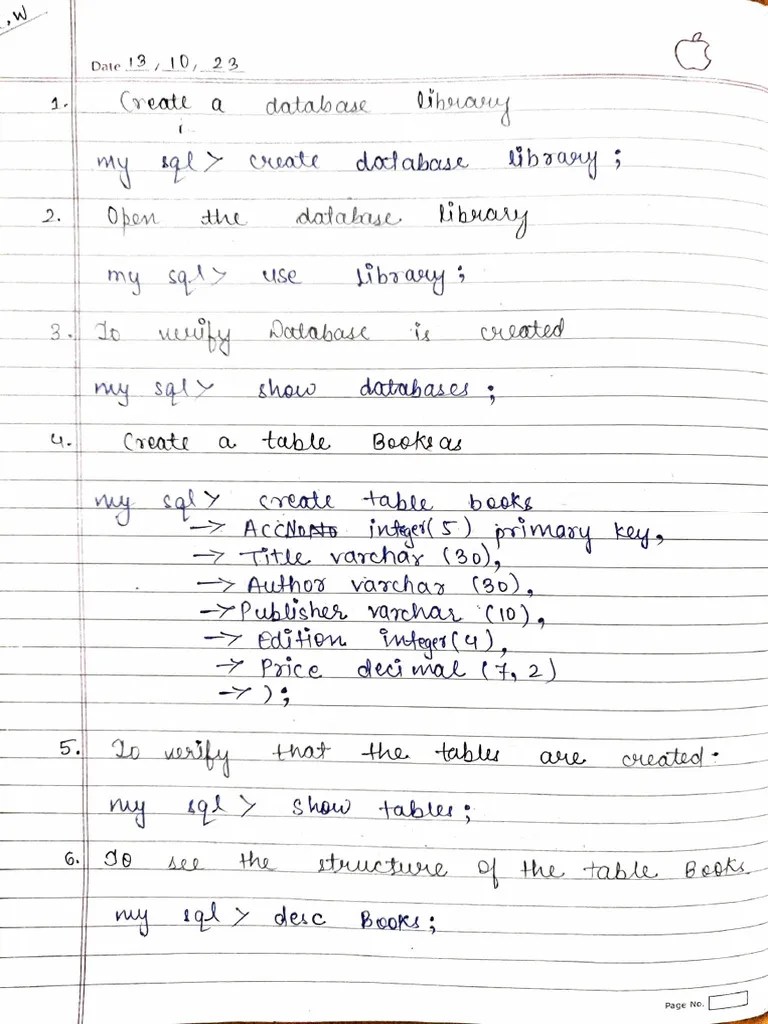 , W
Date 13, 10, 23
1. Create a database library
my sql> create database library;
2. Open the database library
my sql> use library;
3. To verify Database is created
my sql> show databases;
4. Create a table Books as
my sql> create table books
-> ACCNo integer(5) primary key,
-> Title varchar (30),
-> Author varchar (30),
-> Publisher varchar (10),
-> Edition integer(4),
-> Price decimal (7,2)
-> );
5. To verify that the tables are created.
my sql> show tables;
6. To see the structure of the table Books.
my sql> desc Books;
Page No.